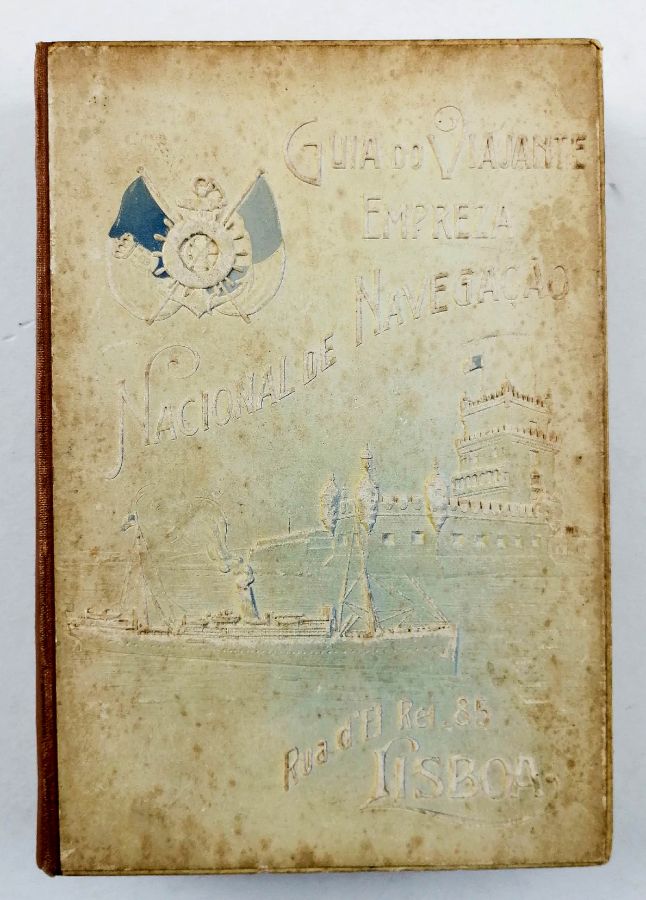 Guia do Viajante
Empreza
Nacional de Navegação
Rua d'El Rei, 85
Lisboa